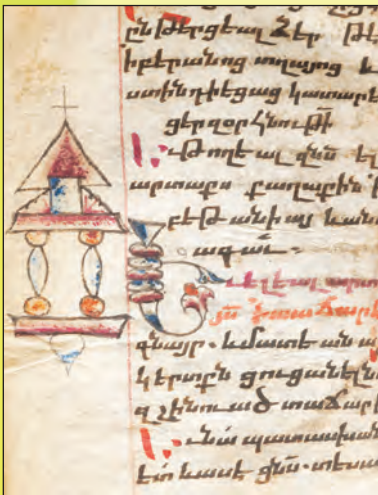 ընթերցեալ ձեր թե
ի բերանոց տղայոց և
ստինդիեցաց կատարե
ցեր զօրհնութի
Եւ թողեալ զնս ել
արտաքս քաղաքին ի
բեթանիայ և ան
ագաւ.
Եւ ելեալ արտա
յս ի տաճարէ
գնայր. և մատեան ա
կերտքն ցուցանել ն
զշինուած տաճարի
Եւ նա պատասխան
ետ և ասէ ցնս. տեսա